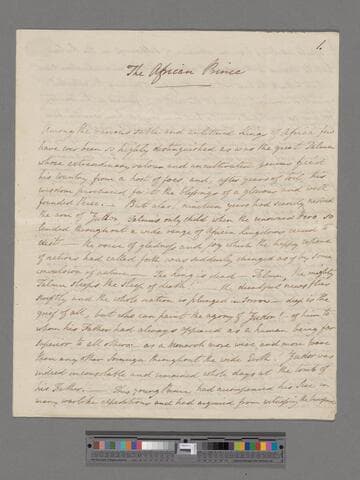 1.
The African Prince
Among the various noble and untutored Kings of Africa few
have ever been so highly distinguished as was the great Telmu
whose extraordinary valour and uncultivated genius freed
his country from a host of foes and, after years of toil, his
wisdom procured for it the blessings of a glorious and well
founded Peace. But alas! nineteen years had scarcely nerved
the arm of Telmu's only child when the renowned so
lauded throughout a wide range of African kingdoms ceased to
exist — the voice of gladness and joy which the happy
of nations had called forth was suddenly changed as if by some
convulsion of nature. — The King is dead — Telmu, the mighty
Telmu sleeps the sleep of death! — The dreadful news flies
swiftly and the whole nation is plunged in sorrow — deep is the
grief of all, but who can paint the agony of ! of him to
whom his Father had always appeared as a human being far
superior to all others: as a Monarch more wise and more brave
than any other Sovereign throughout the wide Earth! was
indeed inconsolable and remained whole days at the tomb of
his Father. — This young Prince had accompanied his Sire in
many warlike expeditions and had acquired from witnessing the